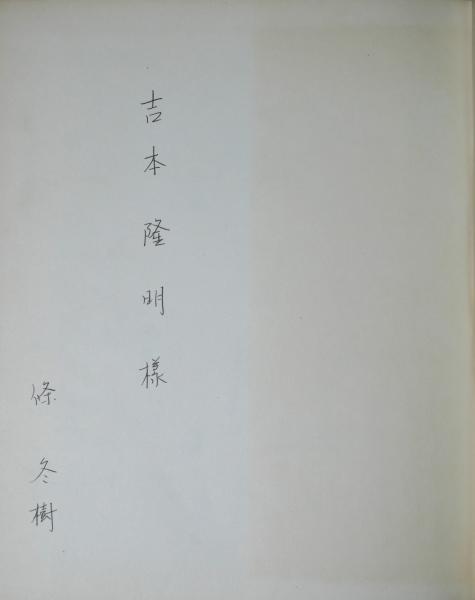 吉本隆明様
條冬樹